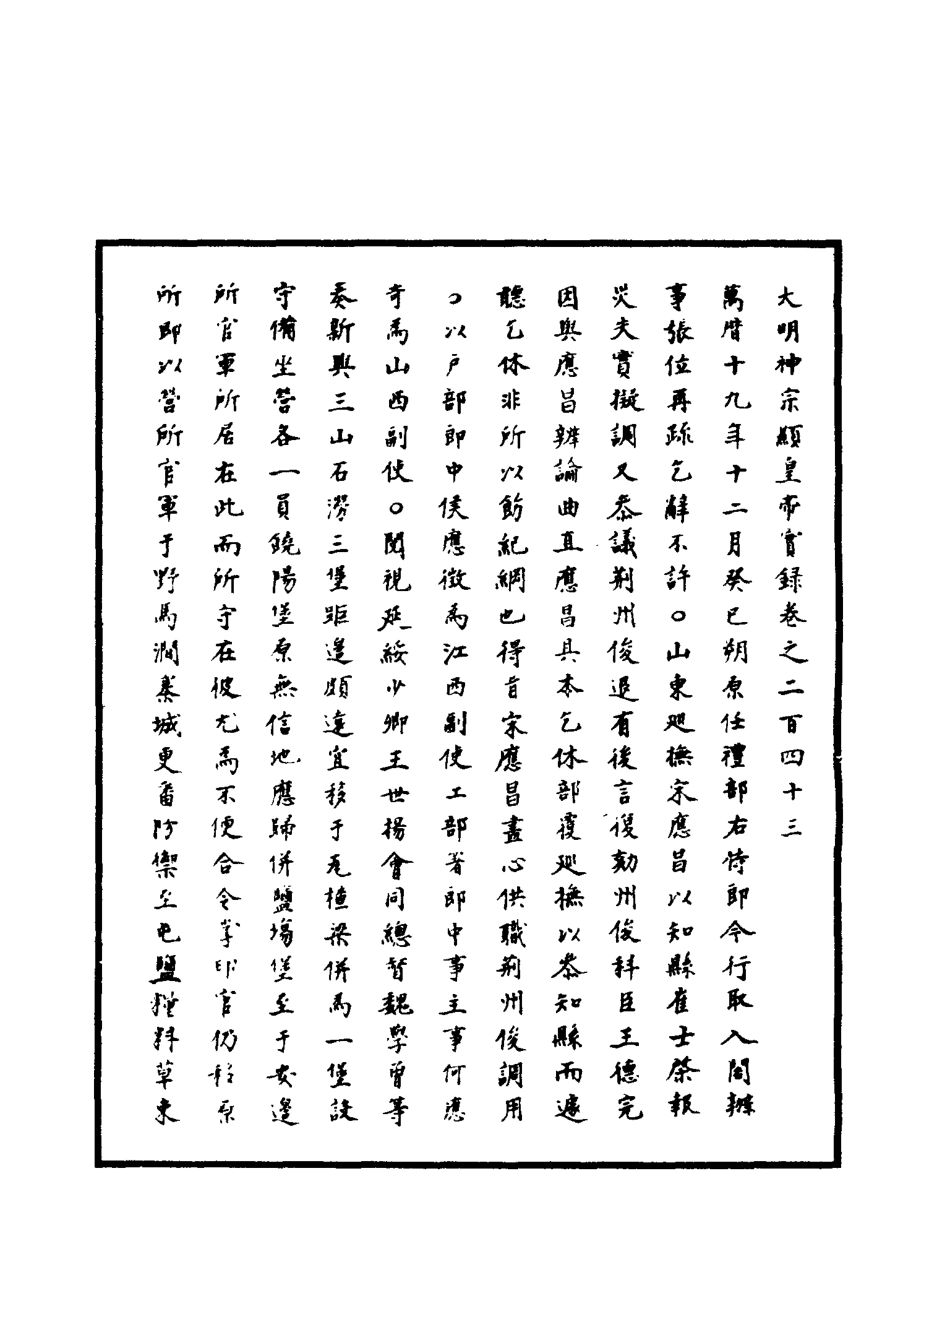 大明神宗顯皇帝實録卷之二百四十三
萬曆十九年十二月癸巳朔原任禮部右侍郎今行取入閣辦
事張位再疏乞辭不許○山東廵撫宋應昌以知縣崔士棨報
災失實擬調又叅議荆州俊退有後言復劾州俊科臣王德完
因與應昌辨論曲直應昌具本乞休部覆廵撫以叅知縣而遽
聽乞休非所以飭紀綱也得旨宋應昌盡心供職荊州俊調用
○以戶部郎中侯應徵為江西副使工部署郎中事主事何應
奇為山西副使○閱視延綏少卿王世揚會同總督魏學曾等
奏新興三山石澇三堡距邉頗遠宜移于瓦楂梁併為一堡設
守備坐營各一員饒陽堡原無信地應歸併鹽塲堡至于安邉
所官軍所居在此而所守在彼尤為不便合令掌印官仍移原
所即以營所官軍于野馬澗秦城更畨防禦至屯鹽糧料草束